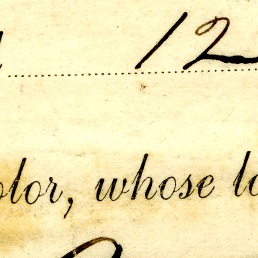 12
olor, whose lo